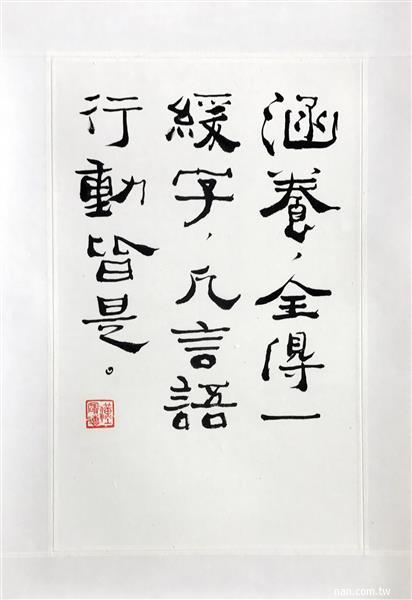 涵養，全得一
緩字，凡言語
行動皆是。
nan.com.tw